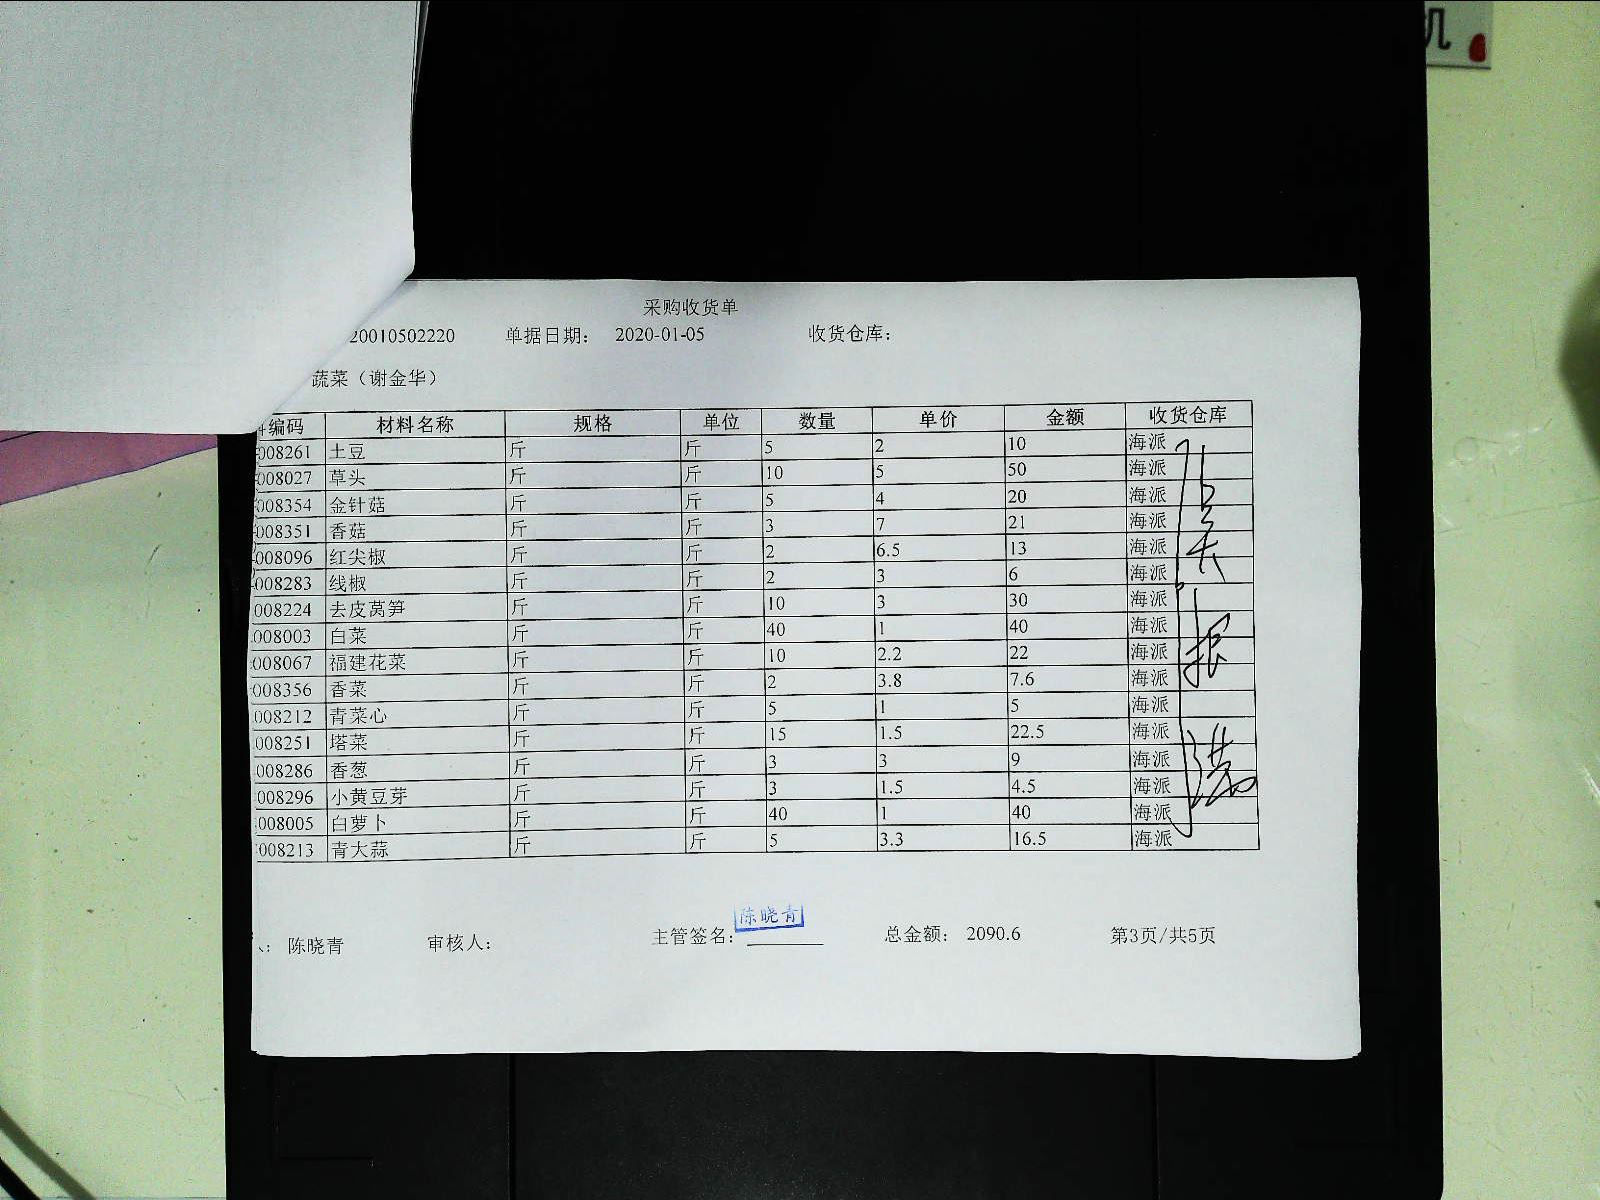 机
采购收货单
20010502220 单据日期： 2020-01-05 收货仓库：
蔬菜（谢金华）
编码 材料名称 规格 单位 数量 单价 金额 收货仓库
008261 土豆 斤 斤 5 2 10 海派
008027 草头 斤 斤 10 5 50 海派
008354 金针菇 斤 斤 5 4 20 海派
008351 香菇 斤 斤 3 7 21 海派
008096 红尖椒 斤 斤 2 6.5 13 海派
008283 线椒 斤 斤 2 3 6 海派
008224 去皮莴笋 斤 斤 10 3 30 海派
008003 白菜 斤 斤 40 1 40 海派
008067 福建花菜 斤 斤 10 2.2 22 海派
008356 香菜 斤 斤 2 3.8 7.6 海派
008212 青菜心 斤 斤 5 1 5 海派
008251 塔菜 斤 斤 15 1.5 22.5 海派
008286 香葱 斤 斤 3 3 9 海派
008296 小黄豆芽 斤 斤 3 1.5 4.5 海派
008005 白萝卜 斤 斤 40 1 40 海派
008213 青大蒜 斤 斤 5 3.3 16.5 海派
陈晓青
人： 陈晓青 审核人： 主管签名： 总金额： 2090.6 第3页/共5页